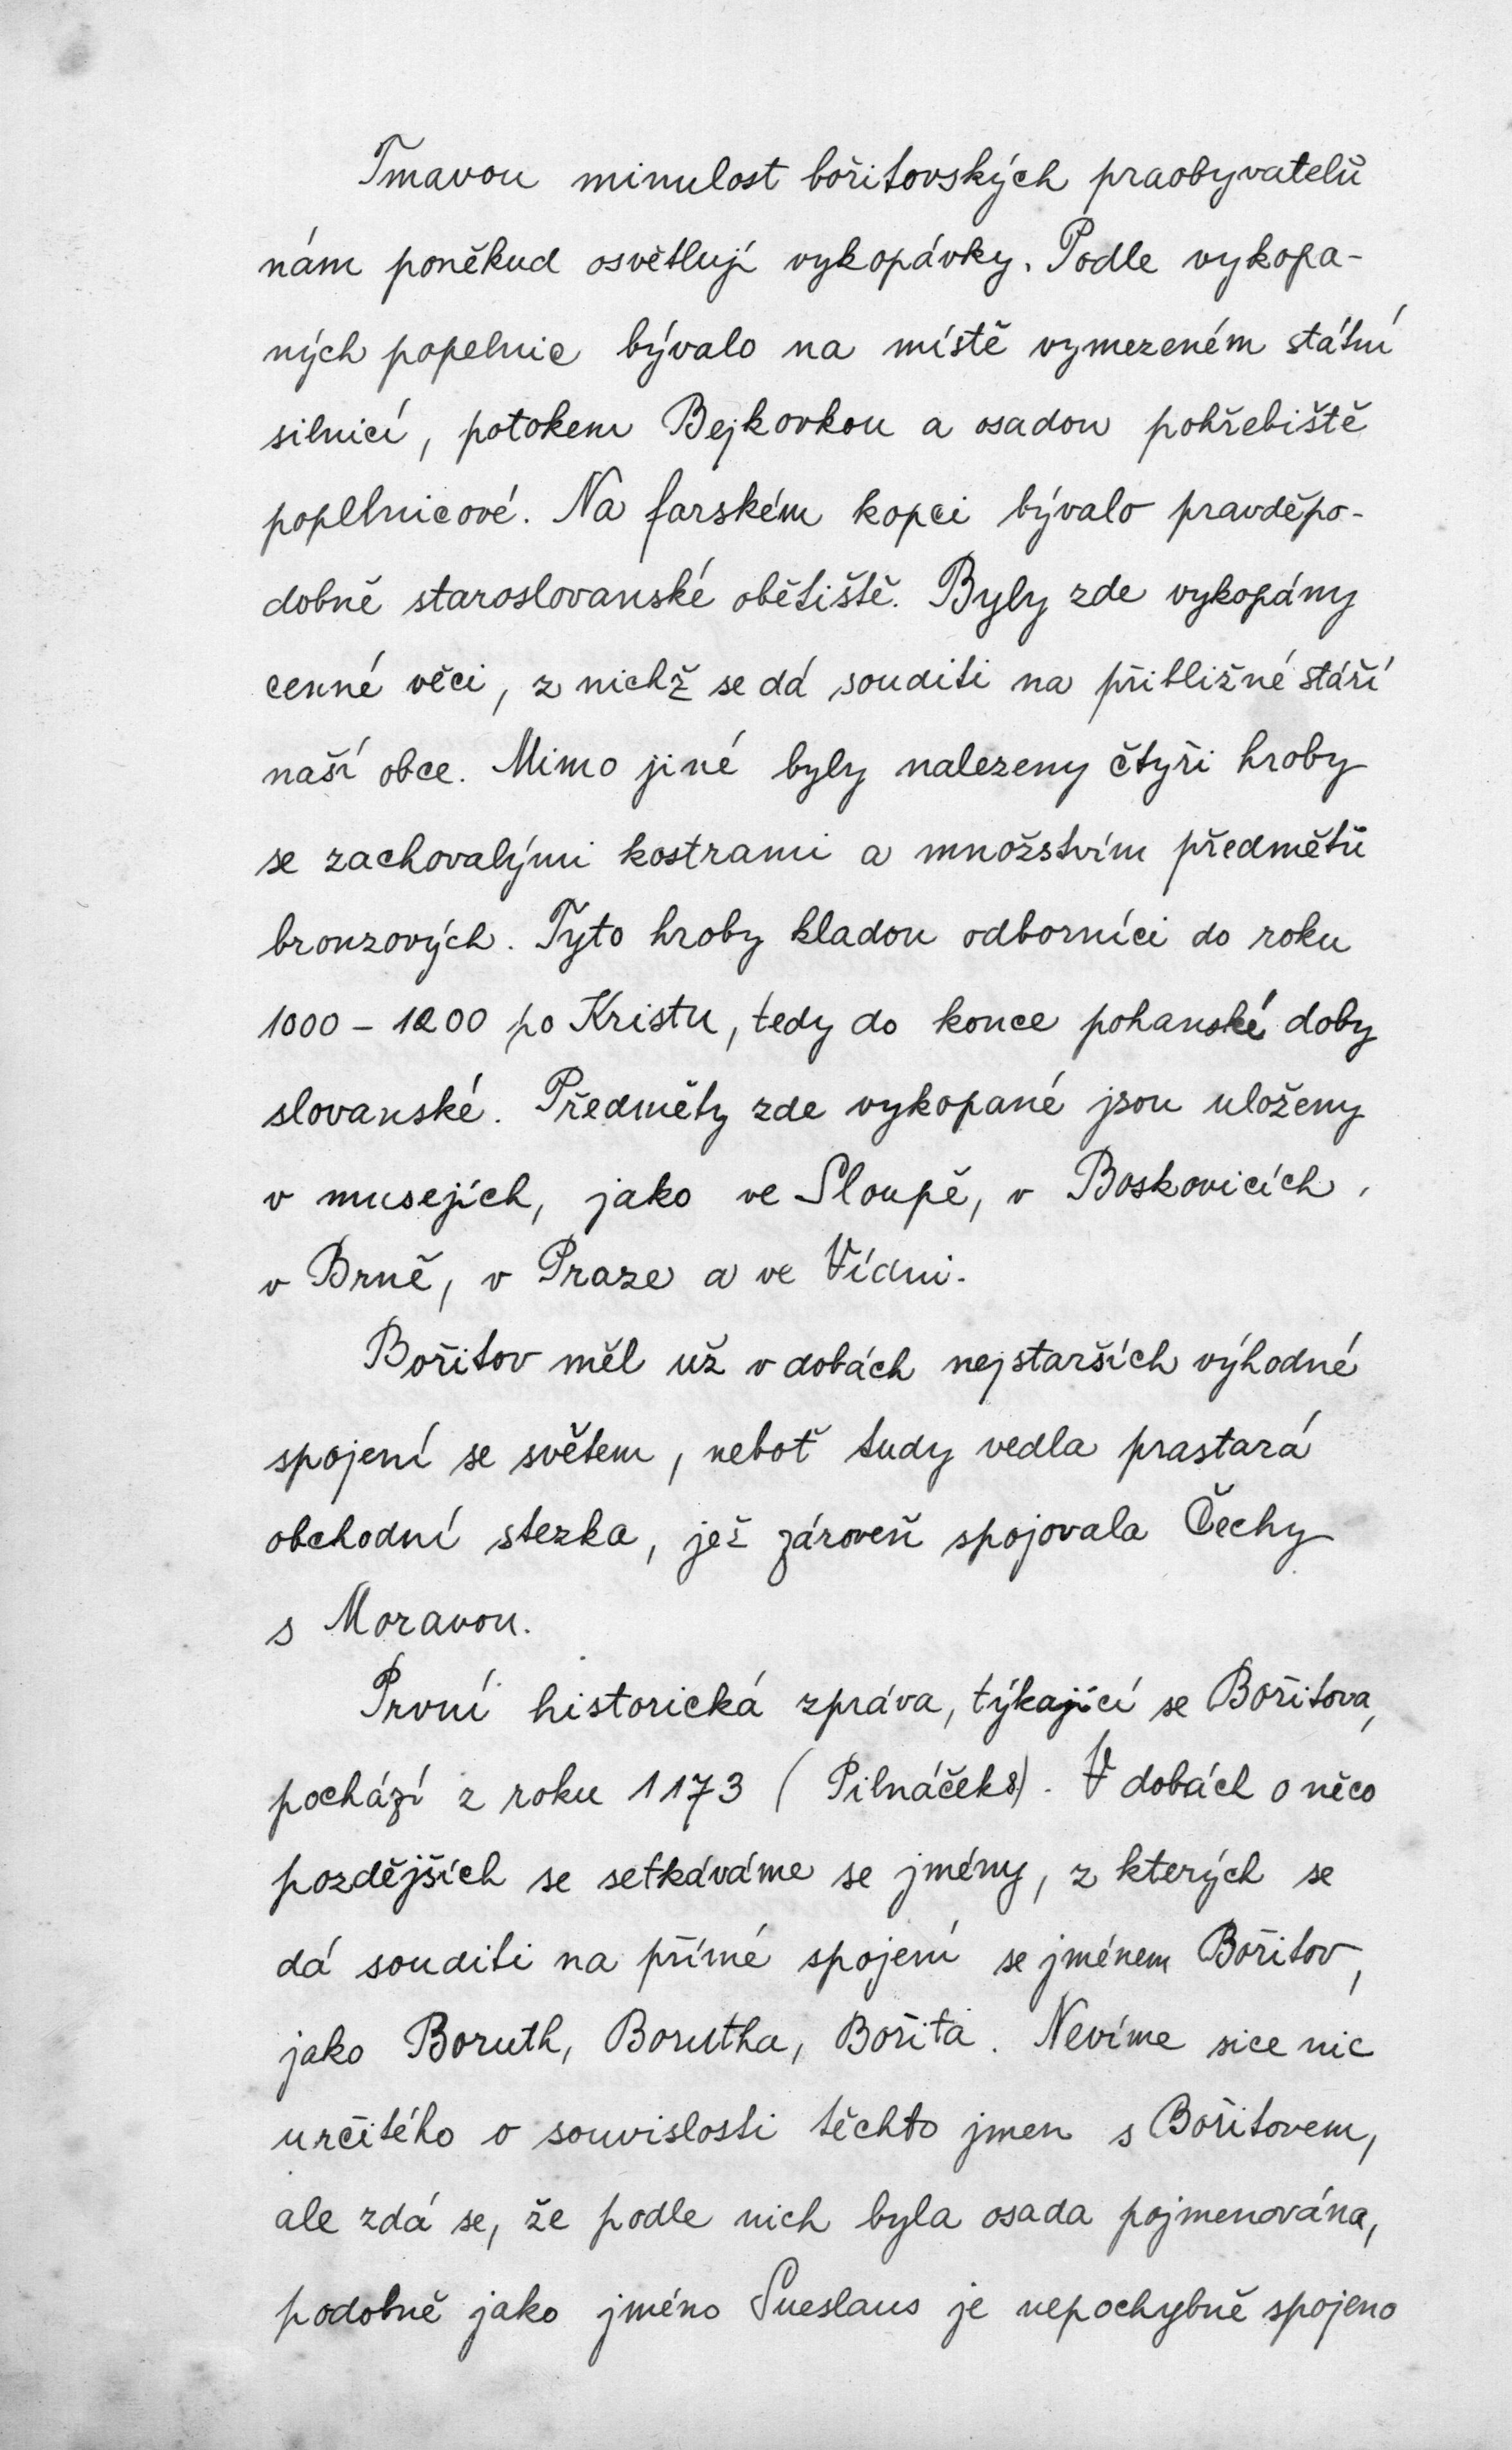 Tmavou minulost bořitovských praobyvatelů
nám poněkud osvětlují vykopávky. Podle vykopa-
ných popelnic bývalo na místě vymezeném státní
silnicí, potokem Bejkovkou a osadou pohřebiště
popelnicové. Na farském kopci bývalo pravděpo-
dobně staroslovanské obětiště. Byly zde vykopány
cenné věci, z nichž se dá souditi na přibližné stáří
naší obce. Mimo jiné byly nalezeny čtyři hroby
se zachovalými kostrami a množstvím předmětů
bronzových. Tyto hroby kladou odborníci do roku
1000 - 1200 po Kristu, tedy do konce pohanské doby
slovanské. Předměty zde vykopané jsou uloženy
v musejích, jako ve Sloupě, v Boskovicích,
v Brně, v Praze a ve Vídni.
Bořitov měl už v dobách nejstarších výhodné
spojení se světem, neboť tudy vedla prastará
obchodní stezka, jež zároveň spojovala Čechy
s Moravou.
První historická zpráva, týkající se Bořitova,
pochází z roku 1173 (Pilnáček8). V dobách o něco
pozdějších se setkáváme se jmény, z kterých se
dá souditi na přímé spojení se jménem Bořitov,
jako Boruth, Borutha, Bořita. Nevíme sice nic
určitého o souvislosti těchto jmen s Bořitovem,
ale zdá se, že podle nich byla osada pojmenována,
podobně jako jméno Sueslaus je nepochybně spojeno